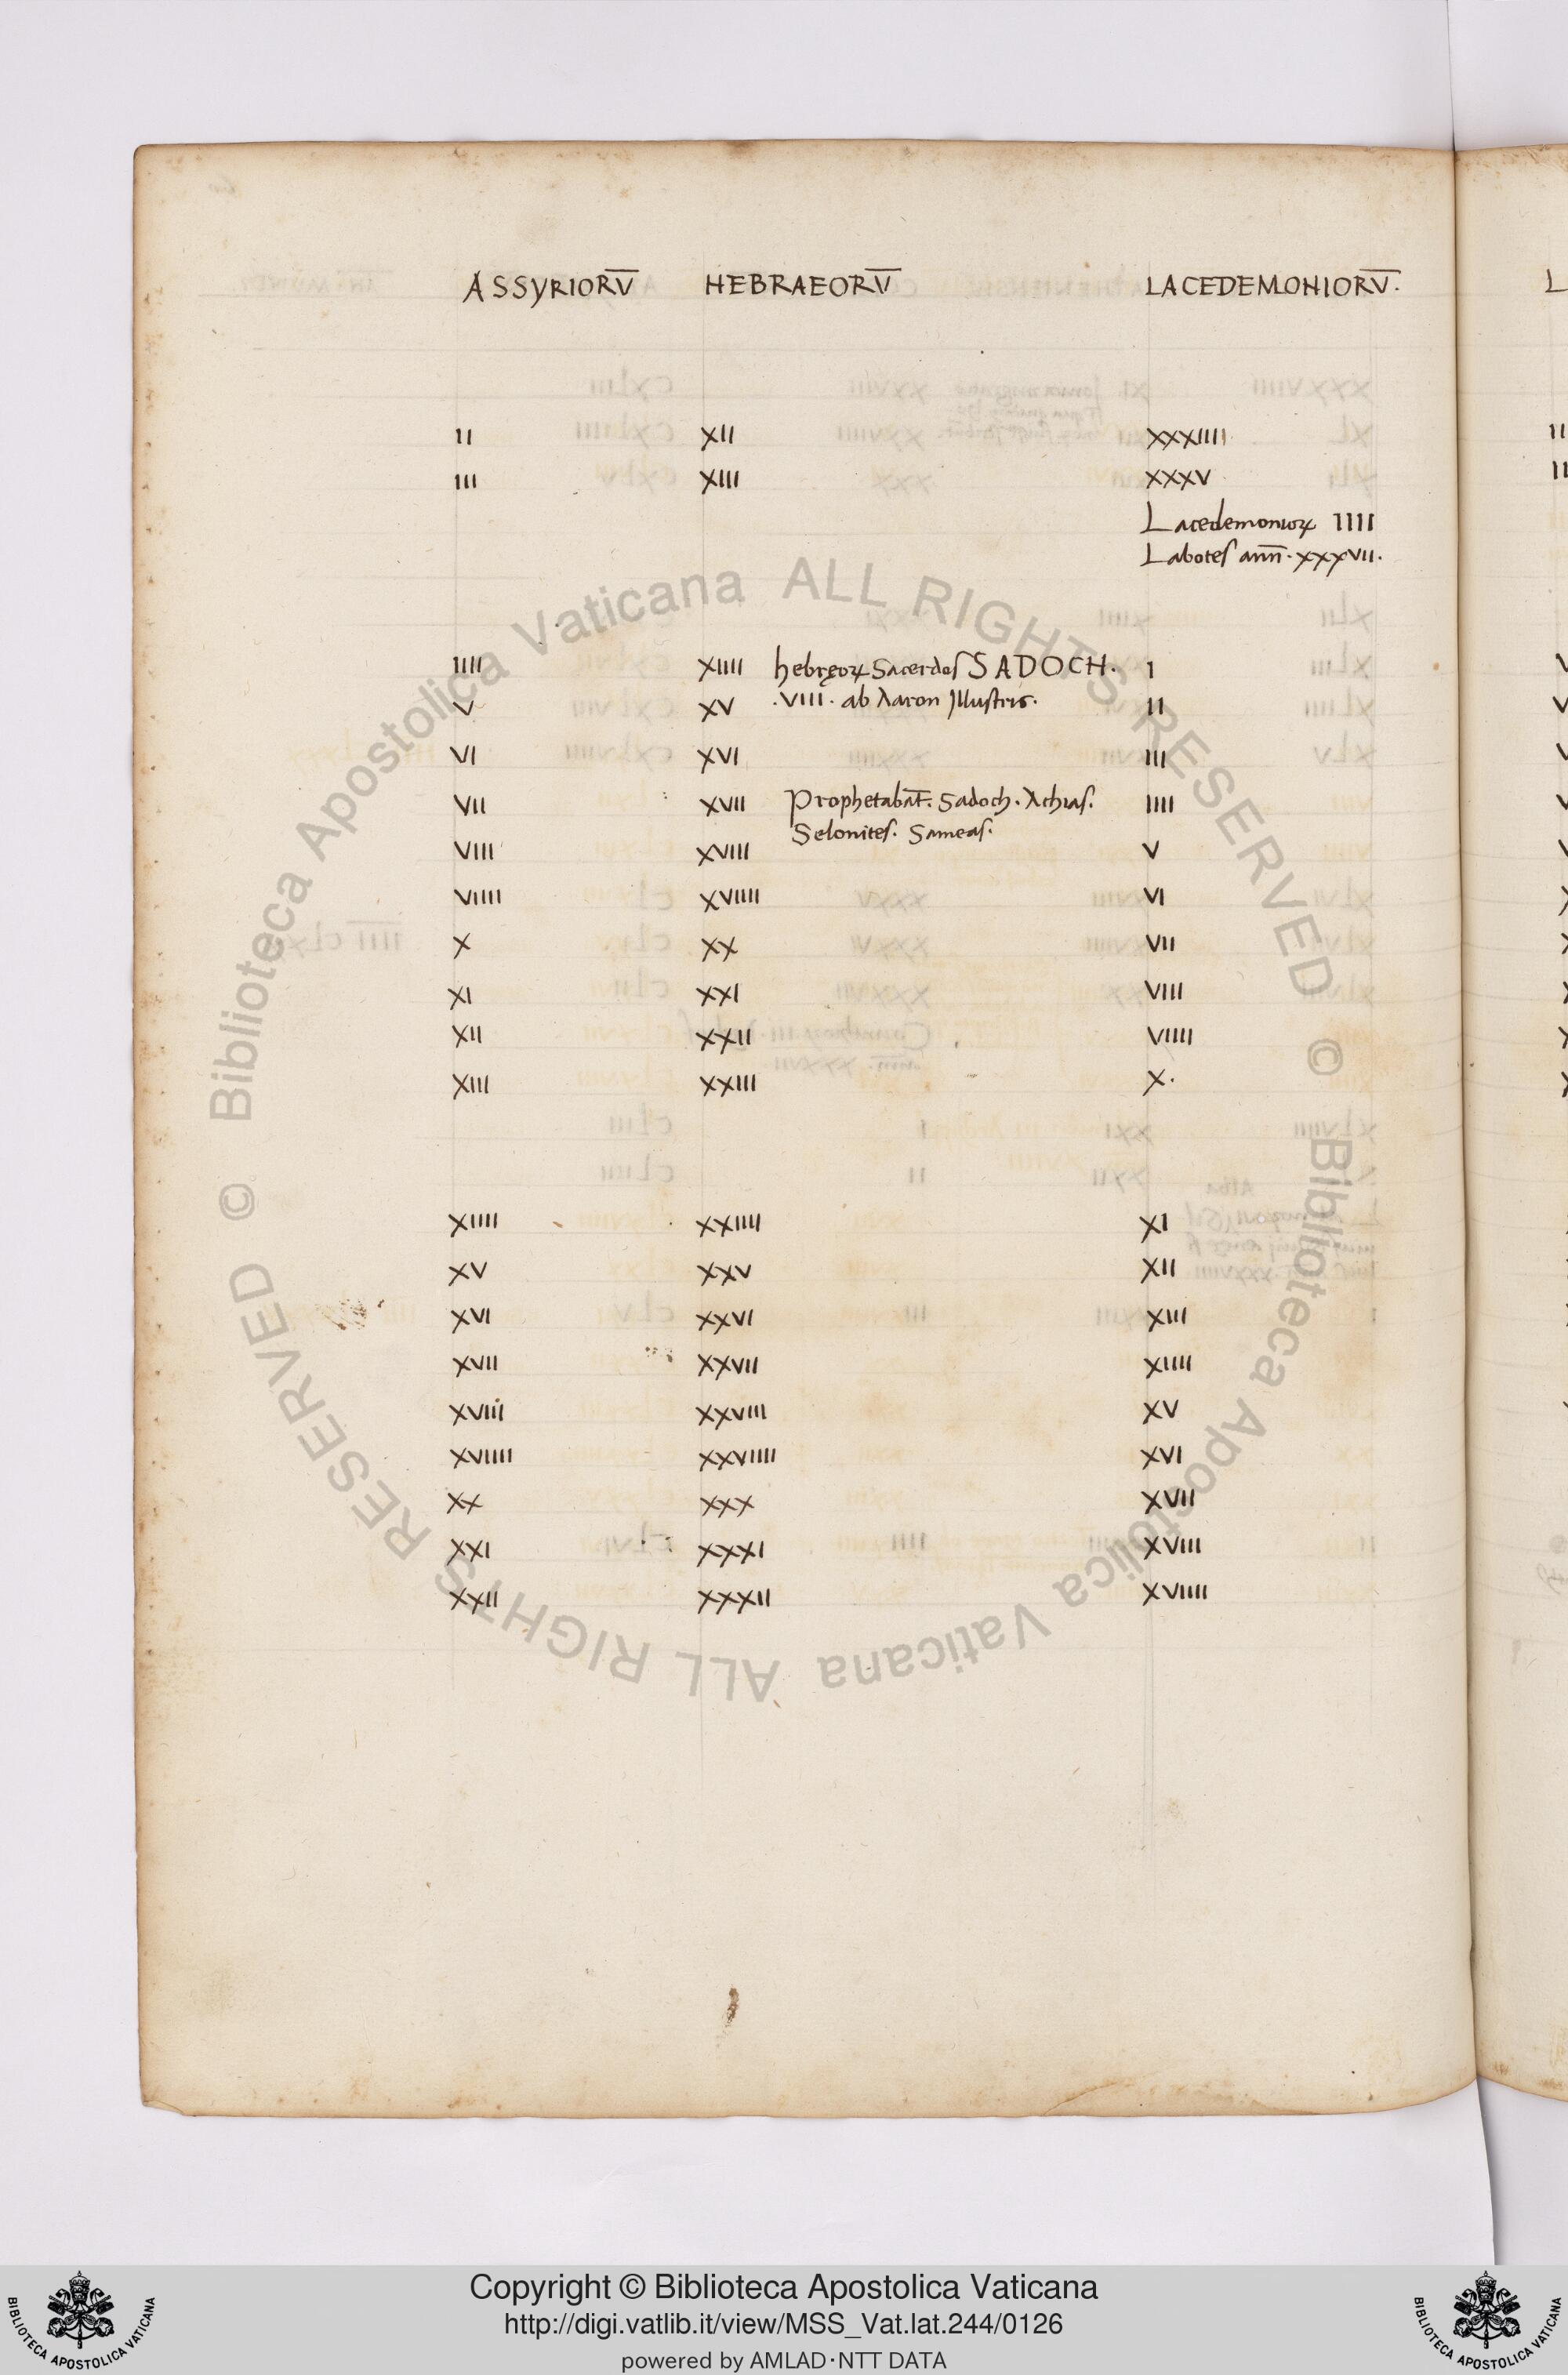 ASSYRIORV̅ HEBRAEORV̅ LACEDEMONIORV̅.
II XII XXXIIII
III XIII XXXV
Lacedemonioꝝ IIII
Labotes ann̅. XXXVII.
IIII XIIII hebręoꝝ Sacerdos SADOCH. I
V XV .VIII. ab Aaron Illustris. II
VI XVI III
VII XVII Prophetabat̅. Sadoch. Achias. IIII
Selonites. Sameas.
VIII XVIII V
VIIII XVIIII VI
X XX VII
XI XXI VIII
XII XXII VIIII
XIII XXIII X.
XIIII XXIIII XI
XV XXV XII
XVI XXVI XIII
XVII XXVII XIIII
XVIII XXVIII XV
XVIIII XXVIIII XVI
XX XXX XVII
XXI XXXI XVIII
XXII XXXII XVIIII
© Biblioteca Apostolica Vaticana ALL RIGHTS RESERVED
© Biblioteca Apostolica Vaticana ALL RIGHTS RESERVED
BIBLIOTECA APOSTOLICA VATICANA
Copyright © Biblioteca Apostolica Vaticana
http://digi.vatlib.it/view/MSS_Vat.lat.244/0126
powered by AMLAD·NTT DATA
BIBLIOTECA APOSTOLICA VATICANA